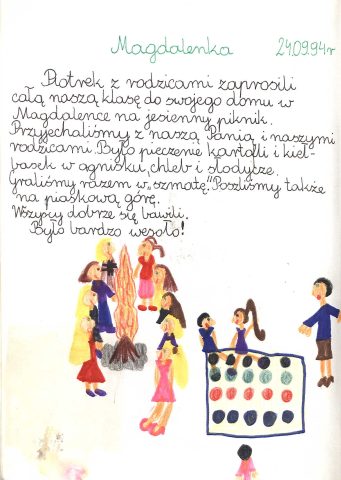 Magdalenka 24.09.94r
Piotrek z rodzicami zaprosili
całą naszą klasę do swojego domu w
Magdalence na jesienny piknik.
Przyjechaliśmy z naszą Panią i naszymi
rodzicami. Było pieczenie kartofli i kieł-
basek w ognisku, chleb i słodycze.
Graliśmy razem w „szmatę." Poszliśmy także
na piaskową górę.
Wszyscy dobrze się bawili.
Było bardzo wesoło!